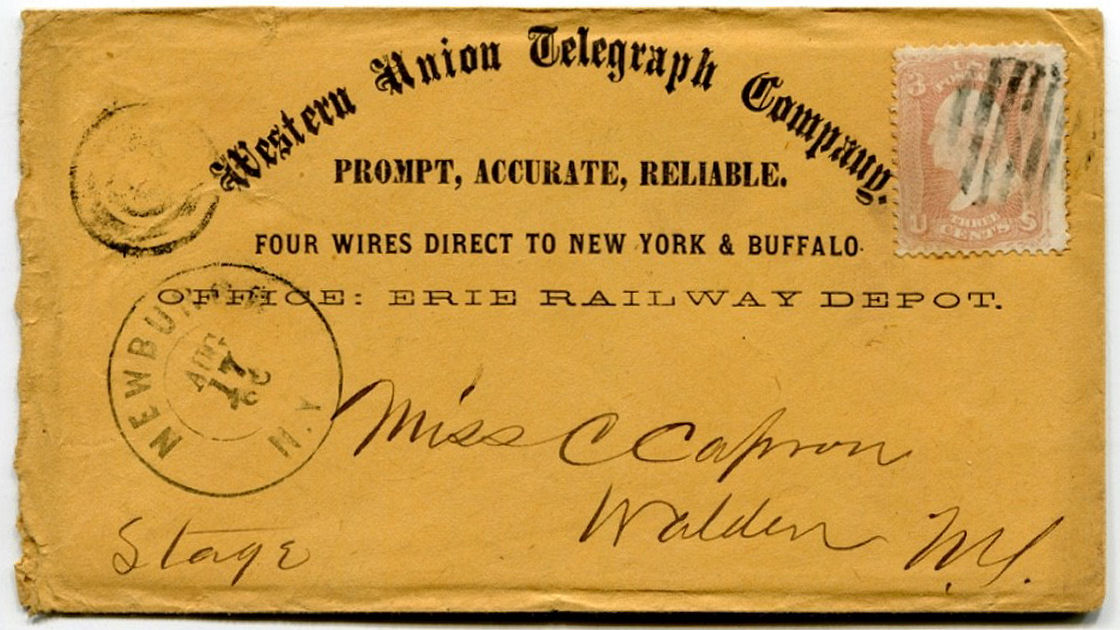 Western Union Telegraph Company.
PROMPT, ACCURATE, RELIABLE.
FOUR WIRES DIRECT TO NEW YORK & BUFFALO.
OFFICE: ERIE RAILWAY DEPOT.
3 U.S. 3
POSTAGE
U THREE S
CENTS
NEWBURGH
AUG
17
N.Y.
Miss C Capron
Walden N.Y.
Stage